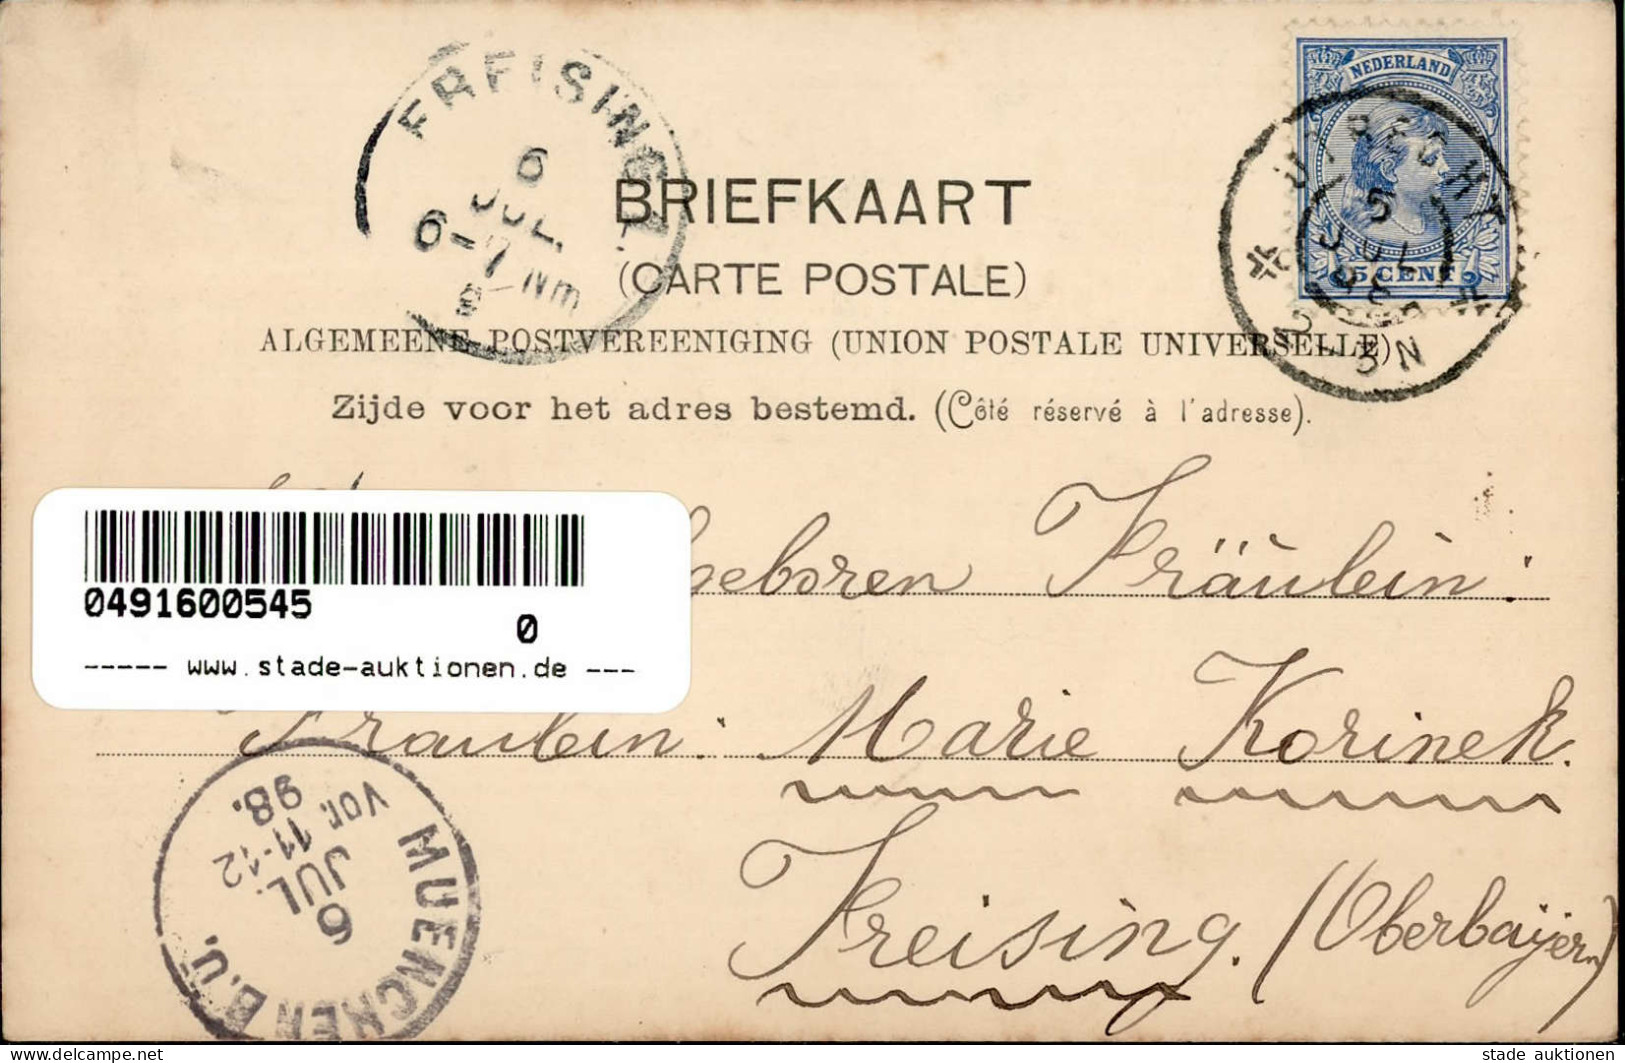 FREISING
6
JUL.
6-7 Nm
NEDERLAND
5 CENT
UTRECHT
5
JUL
98
BRIEFKAART
(CARTE POSTALE)
ALGEMEENE POSTVEREENIGING (UNION POSTALE UNIVERSELLE)
Zijde voor het adres bestemd. (Côté réservé à l'adresse).
Fräulein:
0491600545
0
----- www.stade-auktionen.de ---
Fräulein: Marie Korinek.
Freising. (Oberbayern)
MUENCHEN B.U.
6
JUL.
11-12
Vor.
98.
delcampe.net
stade auktionen